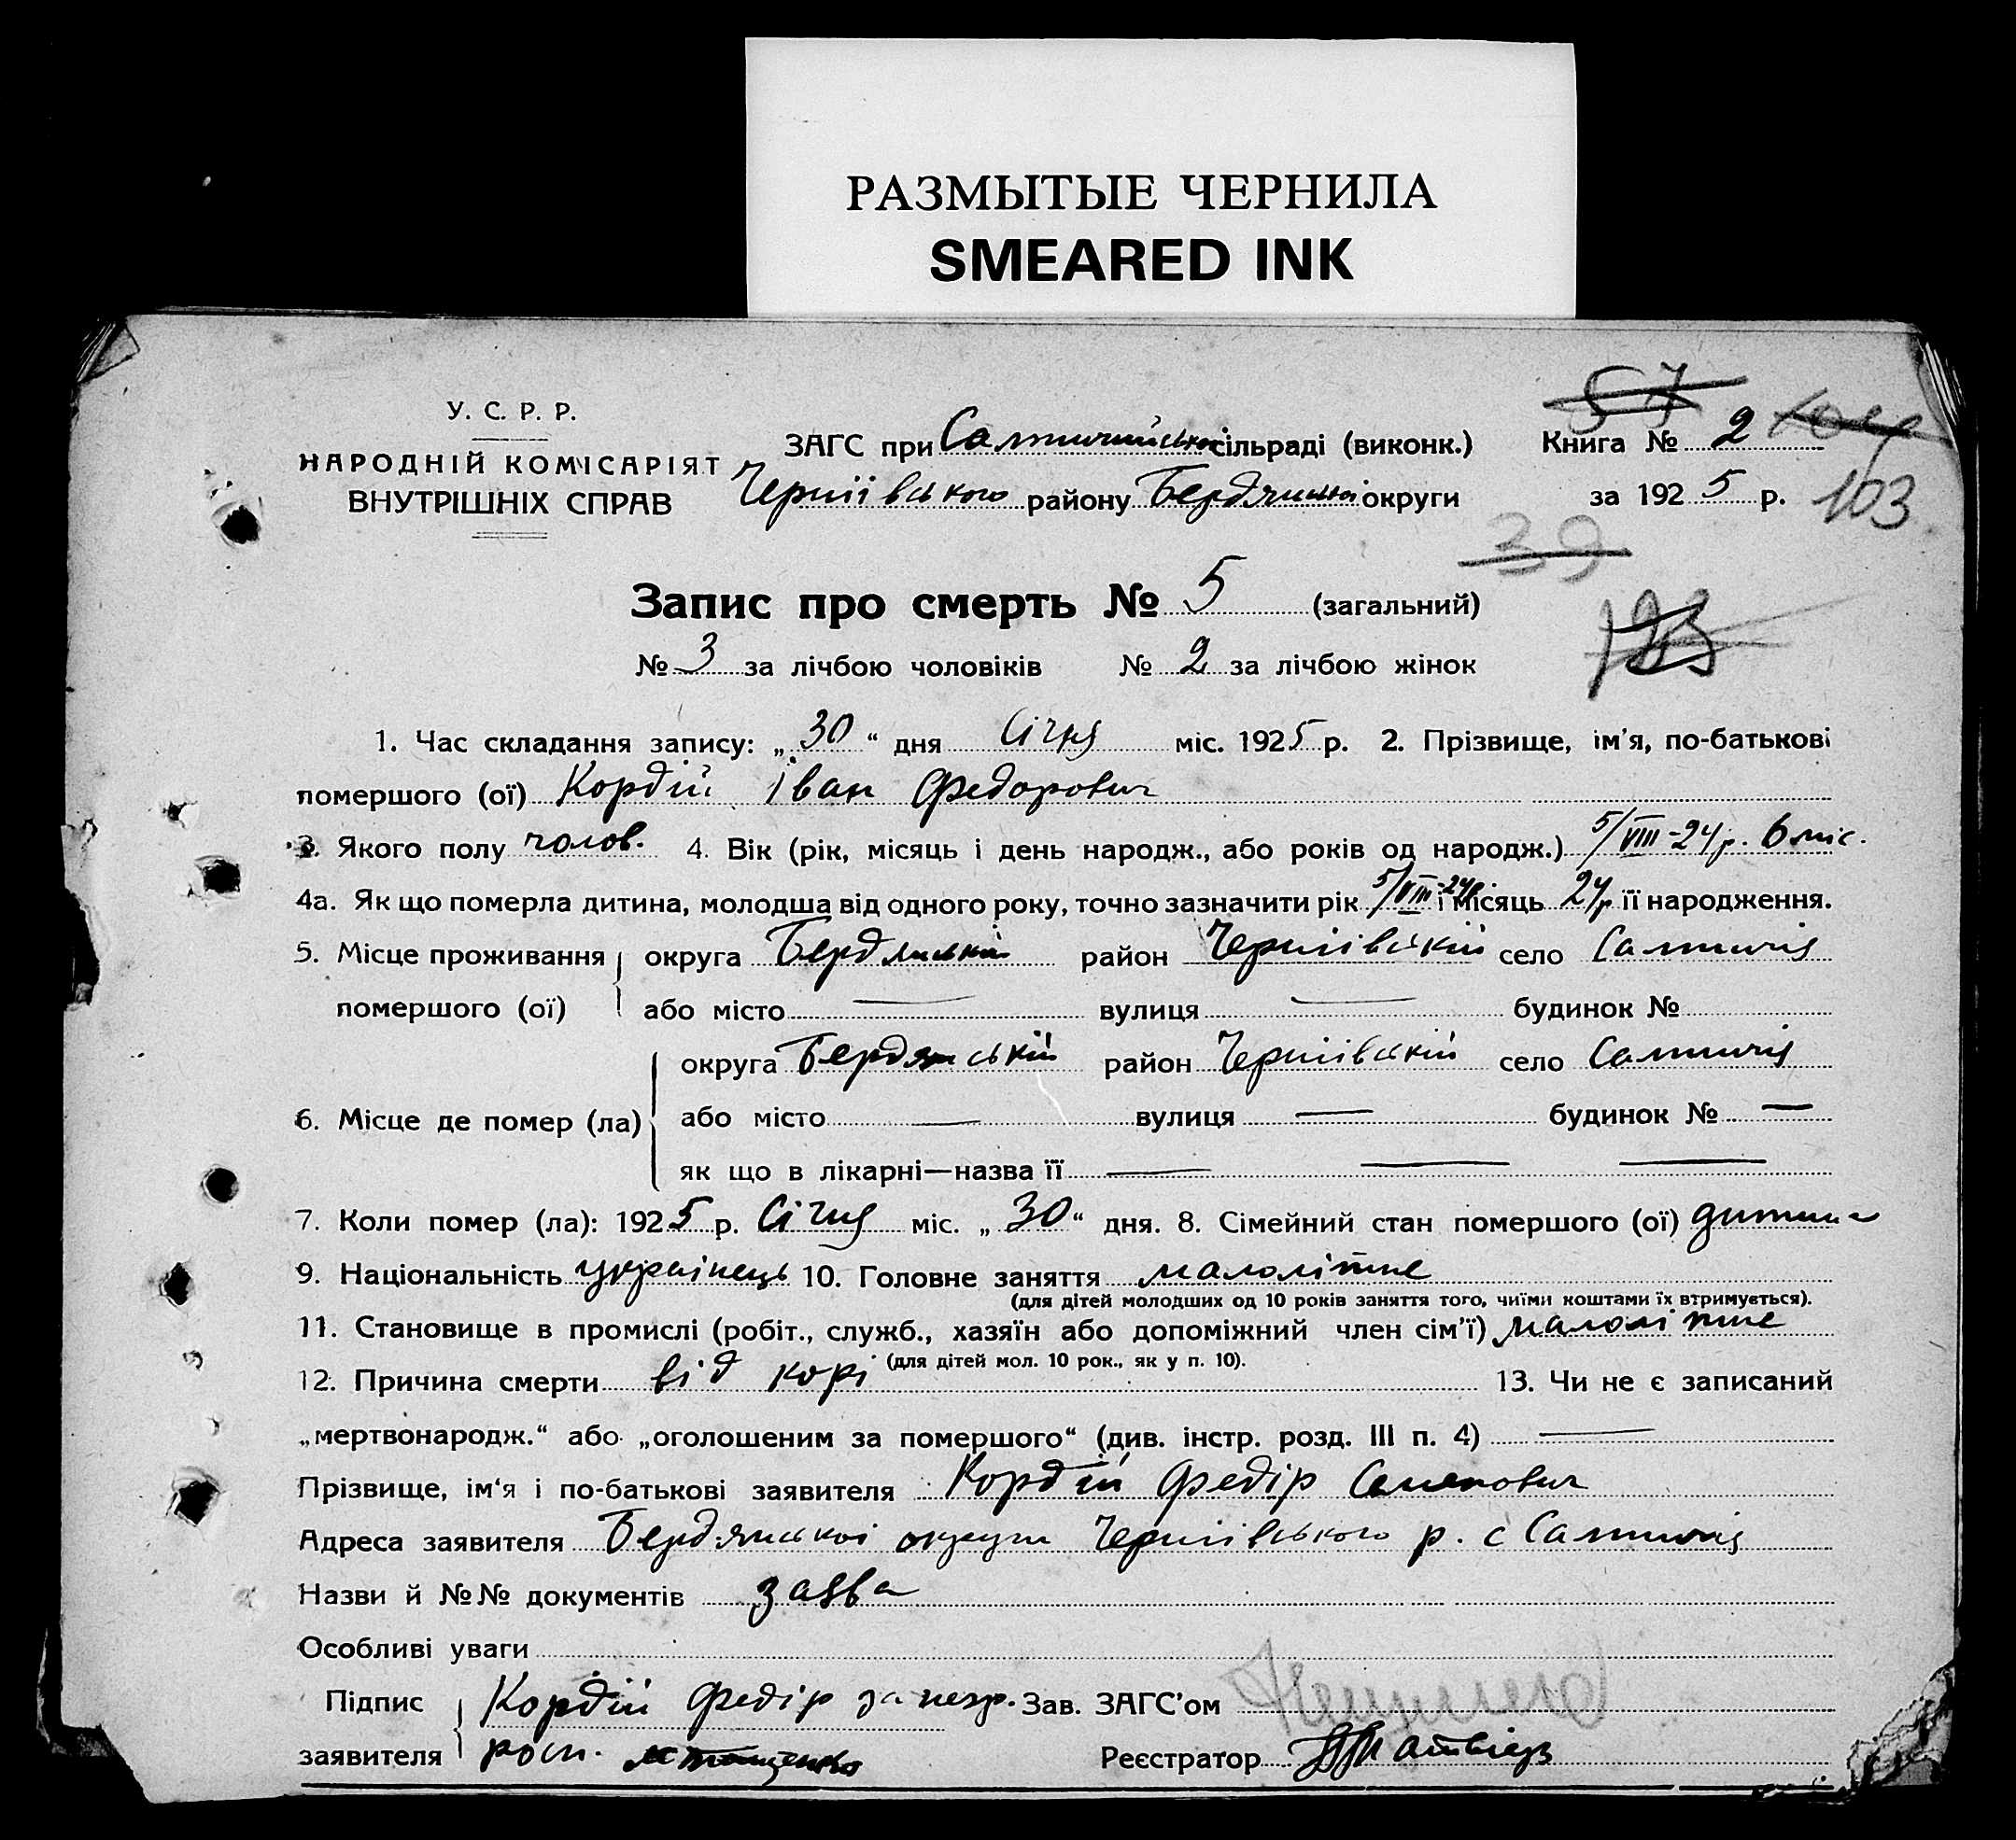 РАЗМЫТЫЕ ЧЕРНИЛА
SMEARED INK
У. С. Р. Р.
НАРОДНІЙ КОМІСАРІЯТ
ВНУТРІШНІХ СПРАВ
ЗАГС при Салтичийської сільраді (виконк.)
Чернігівського району Бердянської округи
57
Книга № 2
за 1925 р. 103
39
Запис про смерть № 5 (загальний)
№ 3 за лічбою чоловіків № 2 за лічбою жінок
123
1. Час складання запису: „ 30 “ дня Січня міс. 1925 р. 2. Прізвище, ім'я, по-батькові
помершого (ої) Кордій Іван Федорович
3. Якого полу чолов. 4. Вік (рік, місяць і день народж., або років од народж.) 5/VIII-24 р. 6 міс.
4а. Як що померла дитина, молодша від одного року, точно зазначити рік 5/VIII-24р і місяць 24 р її народження.
5. Місце проживання округа Бердянській район Чернігівській село Салтичія
помершого (ої) або місто — вулиця — будинок №
округа Бердянській район Чернігівській село Салтичія
6. Місце де помер (ла) або місто — вулиця — будинок № —
як що в лікарні—назва її — — —
7. Коли помер (ла): 1925 р. Січня міс. „ 30 “ дня. 8. Сімейний стан помершого (ої) дитина
9. Національність українець 10. Головне заняття малолітнє
(для дітей молодших од 10 років заняття того, чиїми коштами їх втримується).
11. Становище в промислі (робіт., служб., хазяїн або допоміжний член сім'ї) малолітнє
(для дітей мол. 10 рок., як у п. 10).
12. Причина смерти від корі 13. Чи не є записаний
„мертвонародж.“ або „оголошеним за помершого“ (див. інстр. розд. III п. 4) —
Прізвище, ім'я і по-батькові заявителя Кордій Федір Семенович
Адреса заявителя Бердянської округи Чернігівського р. с Салтичія
Назви й №№ документів заява
Особливі уваги
Підпис Кордій Федір за негр. Зав. ЗАГС'ом
заявителя росп. Реєстратор